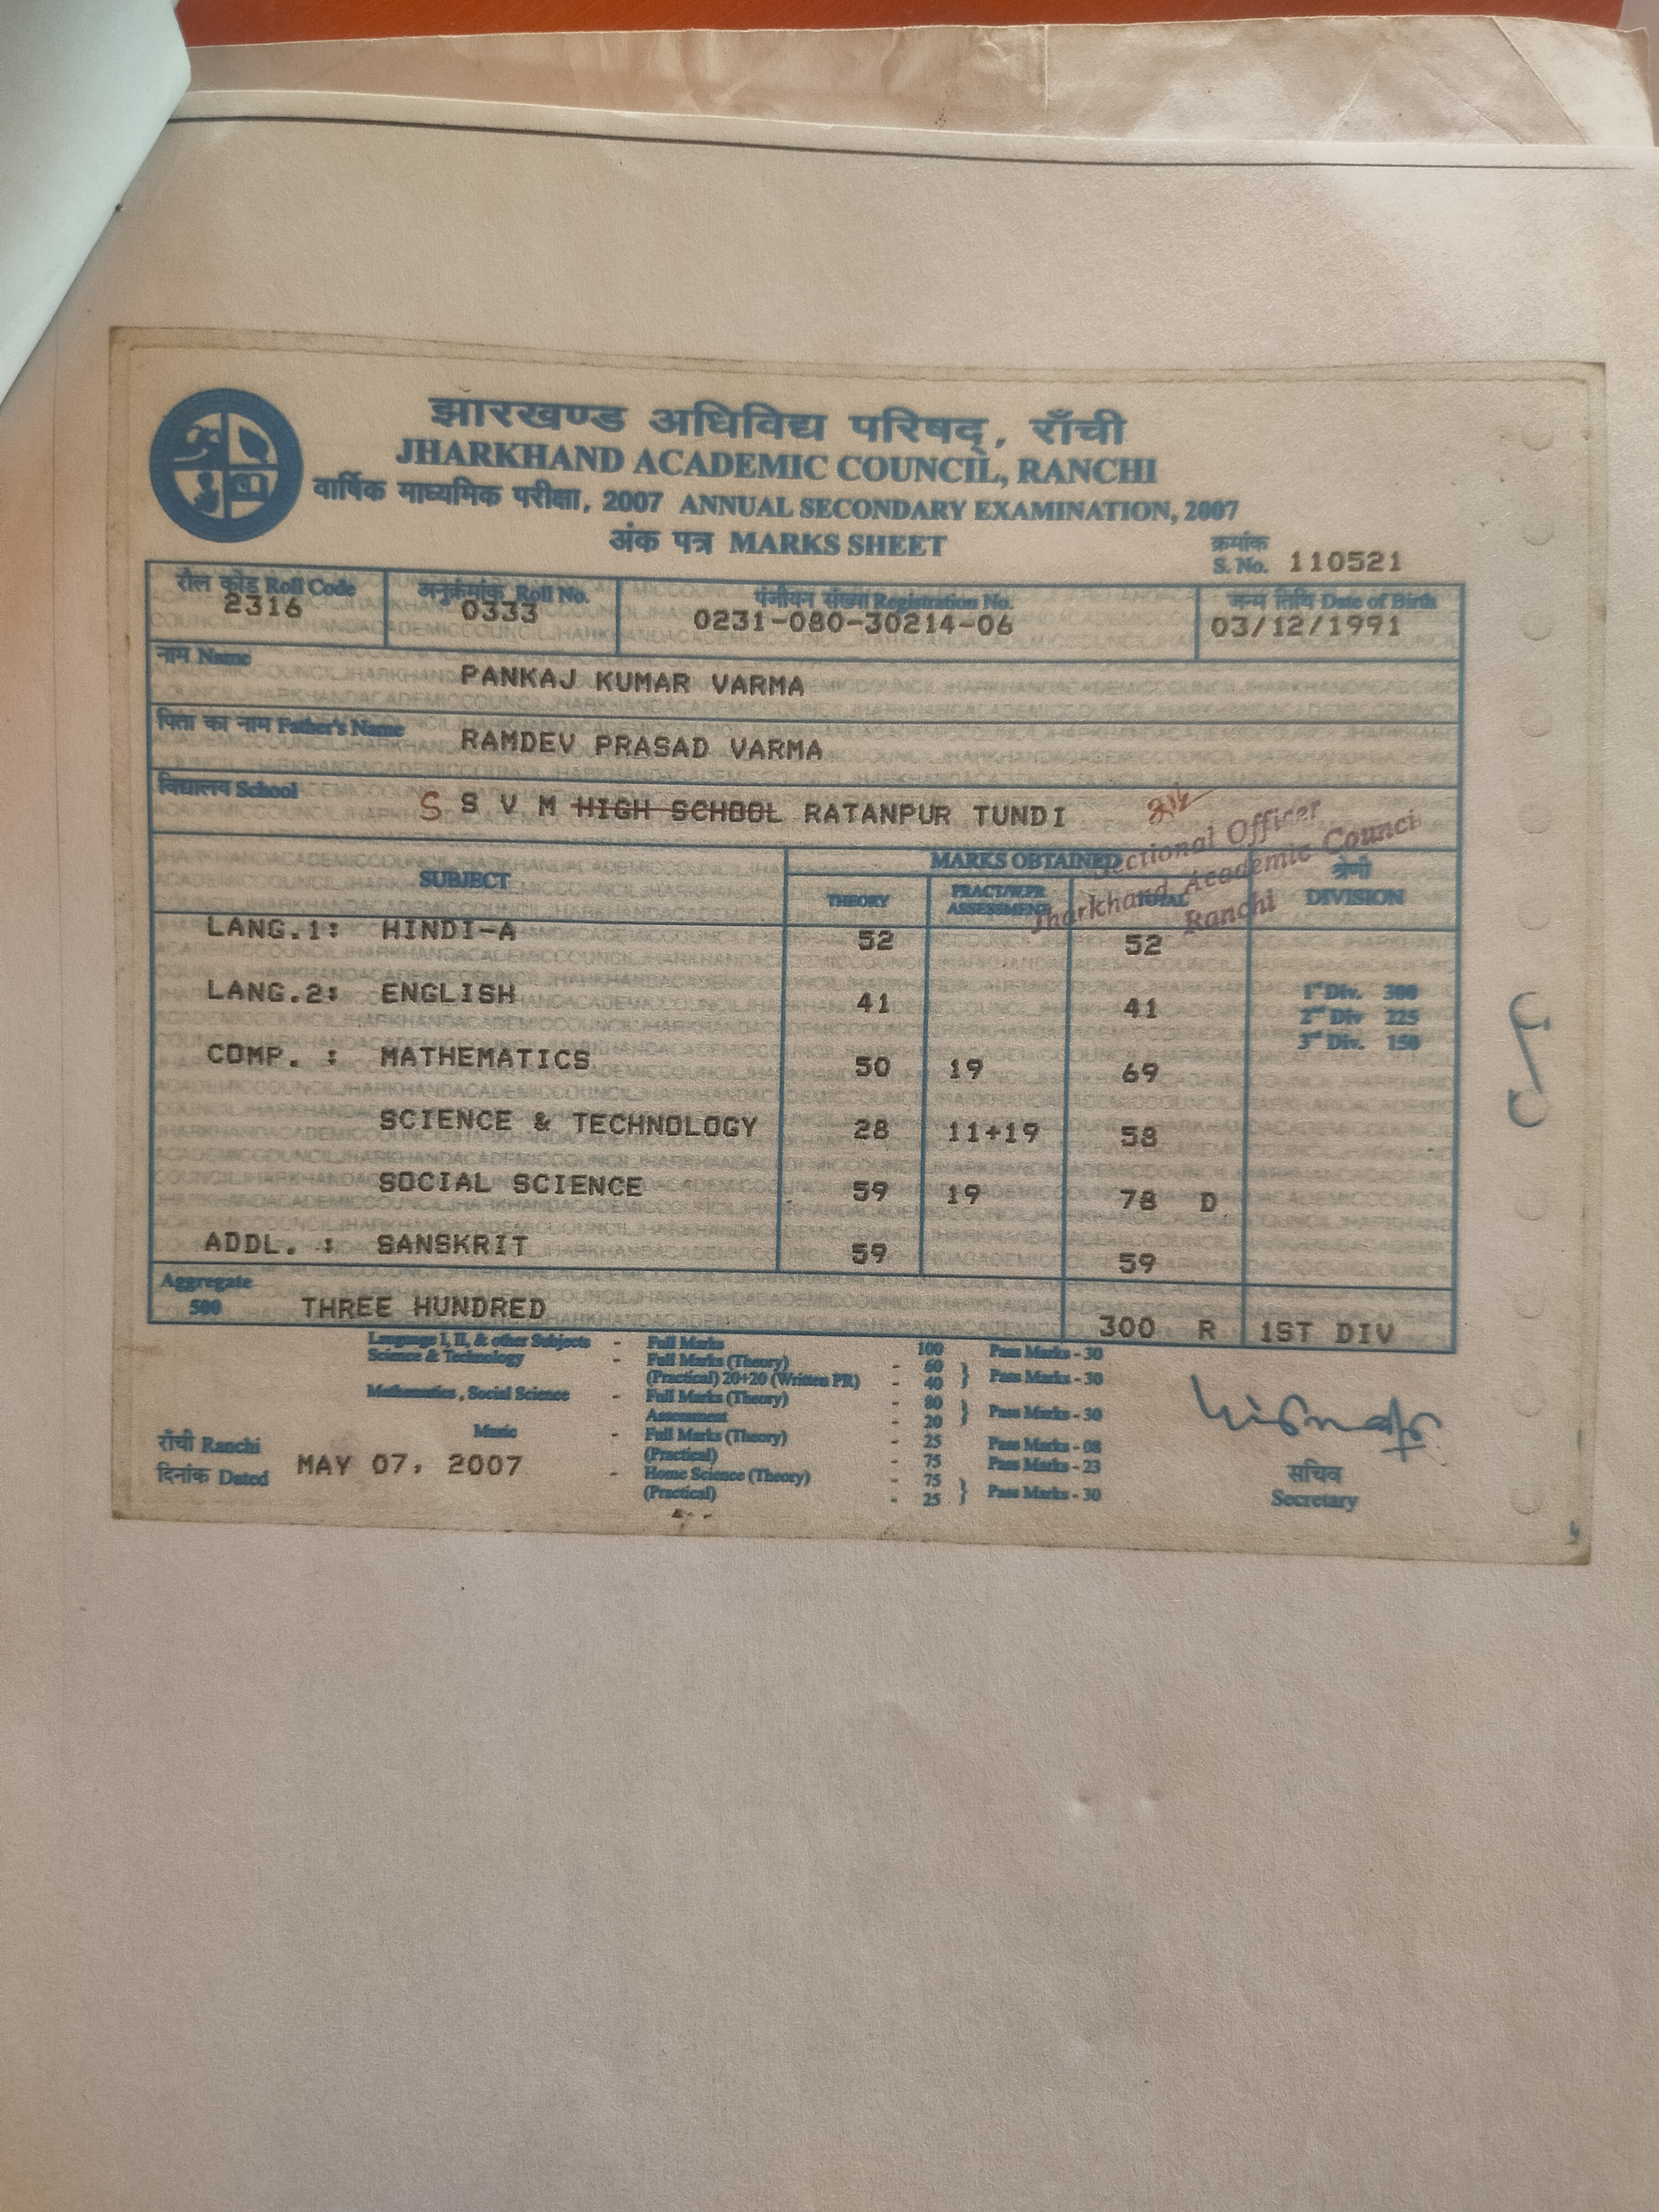 झारखण्ड अधिविद्य परिषद्, राँची
JHARKHAND ACADEMIC COUNCIL, RANCHI
वार्षिक माध्यमिक परीक्षा, 2007 ANNUAL SECONDARY EXAMINATION, 2007
अंक पत्र MARKS SHEET
क्रमांक
S. No. 110521
रौल कोड Roll Code अनुक्रमांक Roll No. पंजीयन संख्या Registration No. जन्म तिथि Date of Birth
2316 0333 0231-080-30214-06 03/12/1991
नाम Name PANKAJ KUMAR VARMA
पिता का नाम Father's Name RAMDEV PRASAD VARMA
विद्यालय School S S V M HIGH SCHOOL RATANPUR TUNDI
Sectional Officer
Jharkhand Academic Council
Ranchi
SUBJECT MARKS OBTAINED श्रेणी
THEORY PRACT/W.PR ASSESSMENT TOTAL DIVISION
LANG.1: HINDI-A 52 52
LANG.2: ENGLISH 41 41
1st Div. 300
2nd Div 225
3rd Div. 150
COMP. : MATHEMATICS 50 19 69
SCIENCE & TECHNOLOGY 28 11+19 58
SOCIAL SCIENCE 59 19 78 D
ADDL. : SANSKRIT 59 59
Aggregate
500 THREE HUNDRED 300 R 1ST DIV
Language I, II, & other Subjects - Full Marks 100 Pass Marks - 30
Science & Technology - Full Marks (Theory) - 60
(Practical) 20+20 (Written PR) - 40 } Pass Marks - 30
Mathematics, Social Science - Full Marks (Theory) - 80
Assessment - 20 } Pass Marks - 30
Music - Full Marks (Theory) - 25 Pass Marks - 08
(Practical) - 75 Pass Marks - 23
- Home Science (Theory) - 75
(Practical) - 25 } Pass Marks - 30
राँची Ranchi
दिनांक Dated MAY 07, 2007
सचिव
Secretary